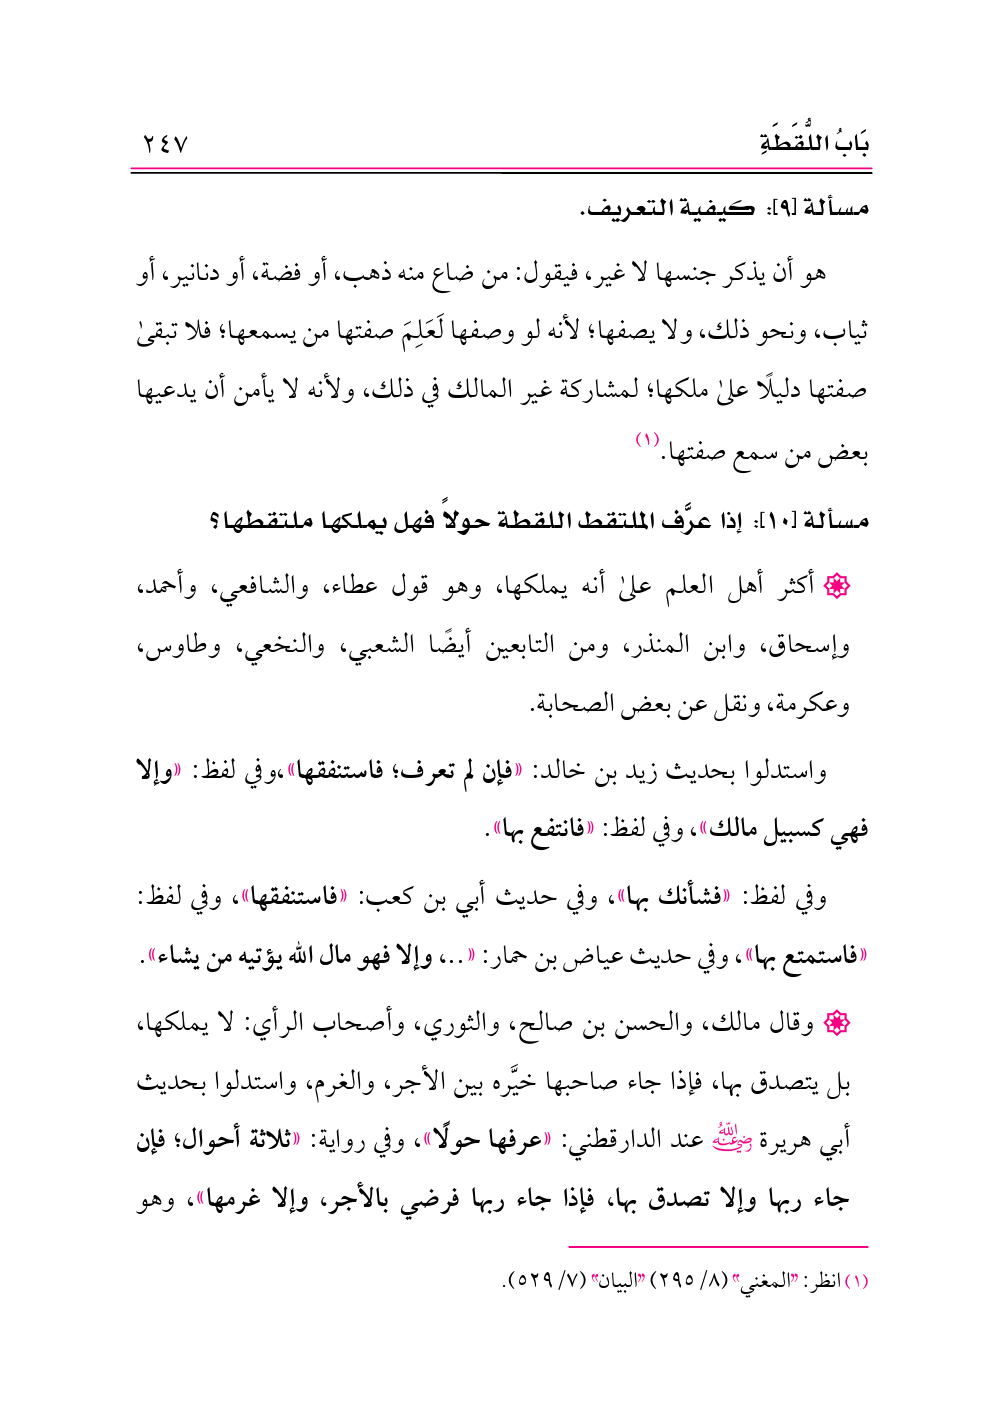 بَابُ اللُّقَطَةِ ٢٤٧
مسألة [٩]: كيفية التعريف.
هو أن يذكر جنسها لا غير، فيقول: من ضاع منه ذهب، أو فضة، أو دنانير، أو
ثياب، ونحو ذلك، ولا يصفها؛ لأنه لو وصفها لَعَلِمَ صفتها من يسمعها؛ فلا تبقىٰ
صفتها دليلًا علىٰ ملكها؛ لمشاركة غير المالك في ذلك، ولأنه لا يأمن أن يدعيها
بعض من سمع صفتها.(١)
مسألة [١٠]: إذا عرَّف الملتقط اللقطة حولاً فهل يملكها ملتقطها؟
أكثر أهل العلم علىٰ أنه يملكها، وهو قول عطاء، والشافعي، وأحمد،
وإسحاق، وابن المنذر، ومن التابعين أيضًا الشعبي، والنخعي، وطاوس،
وعكرمة، ونقل عن بعض الصحابة.
واستدلوا بحديث زيد بن خالد: «فإن لم تعرف؛ فاستنفقها»،وفي لفظ: «وإلا
فهي كسبيل مالك»، وفي لفظ: «فانتفع بها».
وفي لفظ: «فشأنك بها»، وفي حديث أبي بن كعب: «فاستنفقها»، وفي لفظ:
«فاستمتع بها»، وفي حديث عياض بن حمار: «...، وإلا فهو مال الله يؤتيه من يشاء».
وقال مالك، والحسن بن صالح، والثوري، وأصحاب الرأي: لا يملكها،
بل يتصدق بها، فإذا جاء صاحبها خيَّره بين الأجر، والغرم، واستدلوا بحديث
أبي هريرة رضي الله عنه عند الدارقطني: «عرفها حولًا»، وفي رواية: «ثلاثة أحوال؛ فإن
جاء ربها وإلا تصدق بها، فإذا جاء ربها فرضي بالأجر، وإلا غرمها»، وهو
(١) انظر: "المغني" (٨/ ٢٩٥) "البيان" (٧/ ٥٢٩).